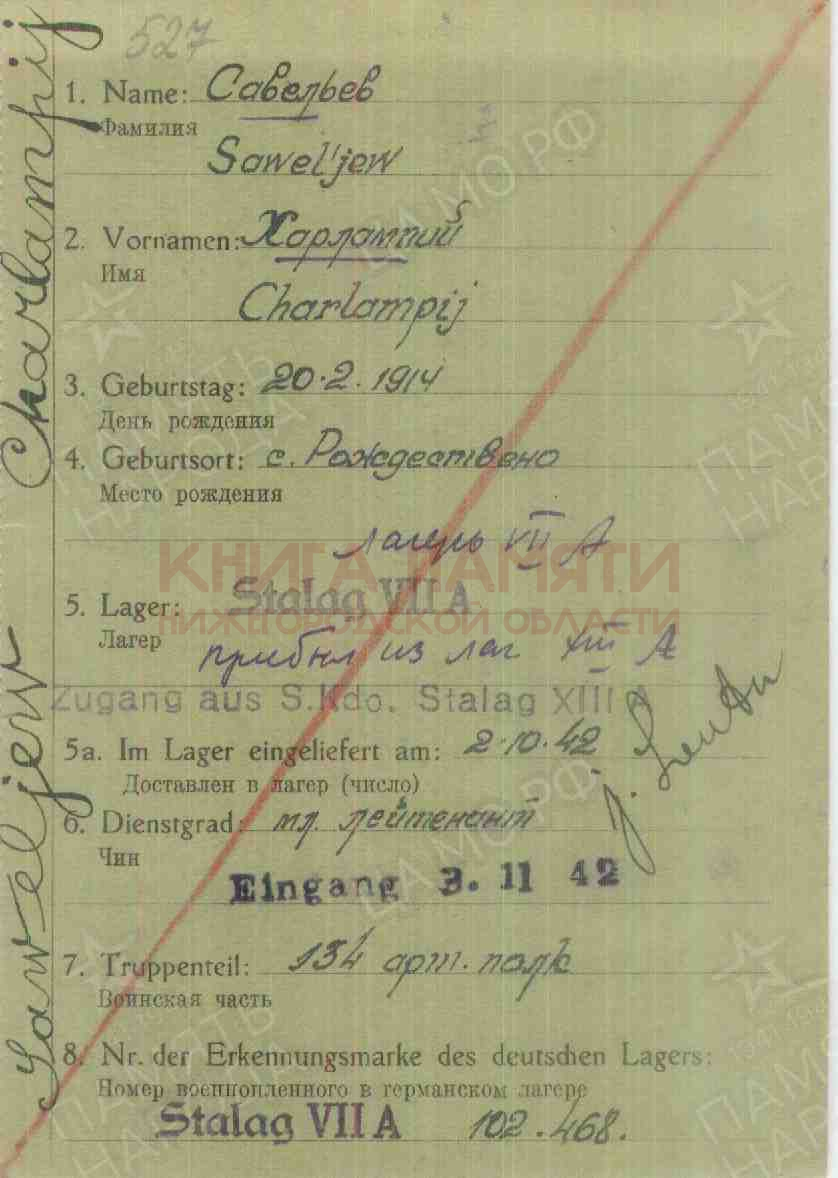 527
1. Name: Савельев
Фамилия
Sawel'jew
2. Vornamen: Харлампий
Имя
Charlampij
3. Geburtstag: 20.2.1914
День рождения
4. Geburtsort: с. Рождествено
Место рождения
лагерь VII А
КНИГА ПАМЯТИ
5. Lager: Stalag VII A
НИЖЕГОРОДСКОЙ ОБЛАСТИ
Лагер
прибыл из лаг XIII А
Zugang aus S.Kdo. Stalag XIII A
5a. Im Lager eingeliefert am: 2.10.42
Доставлен в лагер (число)
6. Dienstgrad: мл. лейтенант
Чин
Eingang 3. 11 42
7. Truppenteil: 134 арт. полк
Воинская часть
8. Nr. der Erkennungsmarke des deutschen Lagers:
Номер военнопленного в германском лагере
Stalag VII A 102.468.
Saweljew Charlampij
ЦАМО РФ
ПАМЯТЬ НАРОДА
ЦАМО РФ
ПАМЯТЬ НАРОДА